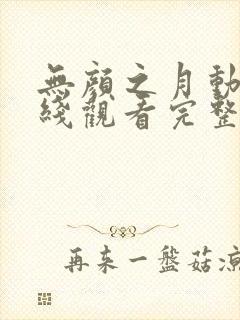 無顏之月動
綫觀看完整
再来一盤菇涼